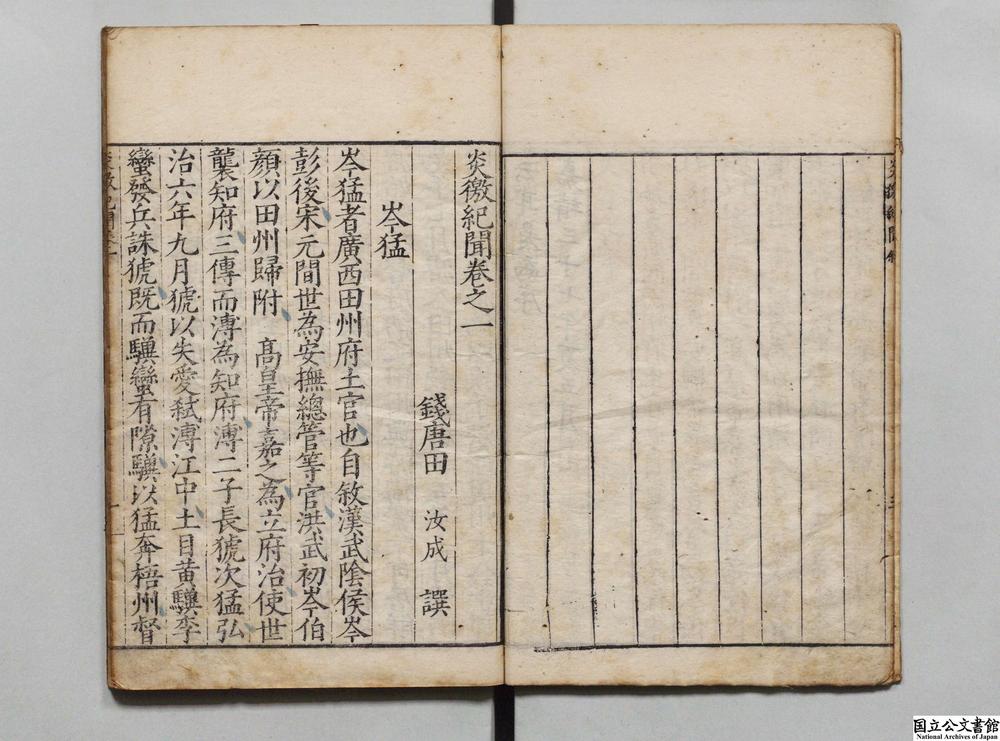 炎徼紀聞卷之一
錢唐田 汝成 譔
岑猛
岑猛者廣西田州府土官也自敘漢武陰侯岑
彭後宋元間世為安撫總管等官洪武初岑伯
顏以田州歸附 高皇帝嘉之為立府治使世
襲知府三傳而溥為知府溥二子長猇次猛弘
治六年九月猇以失愛弒溥江中土目黃驥李
蠻發兵誅猇既而驥蠻有隙驥以猛奔梧州督
国立公文書館
National Archives of Japan